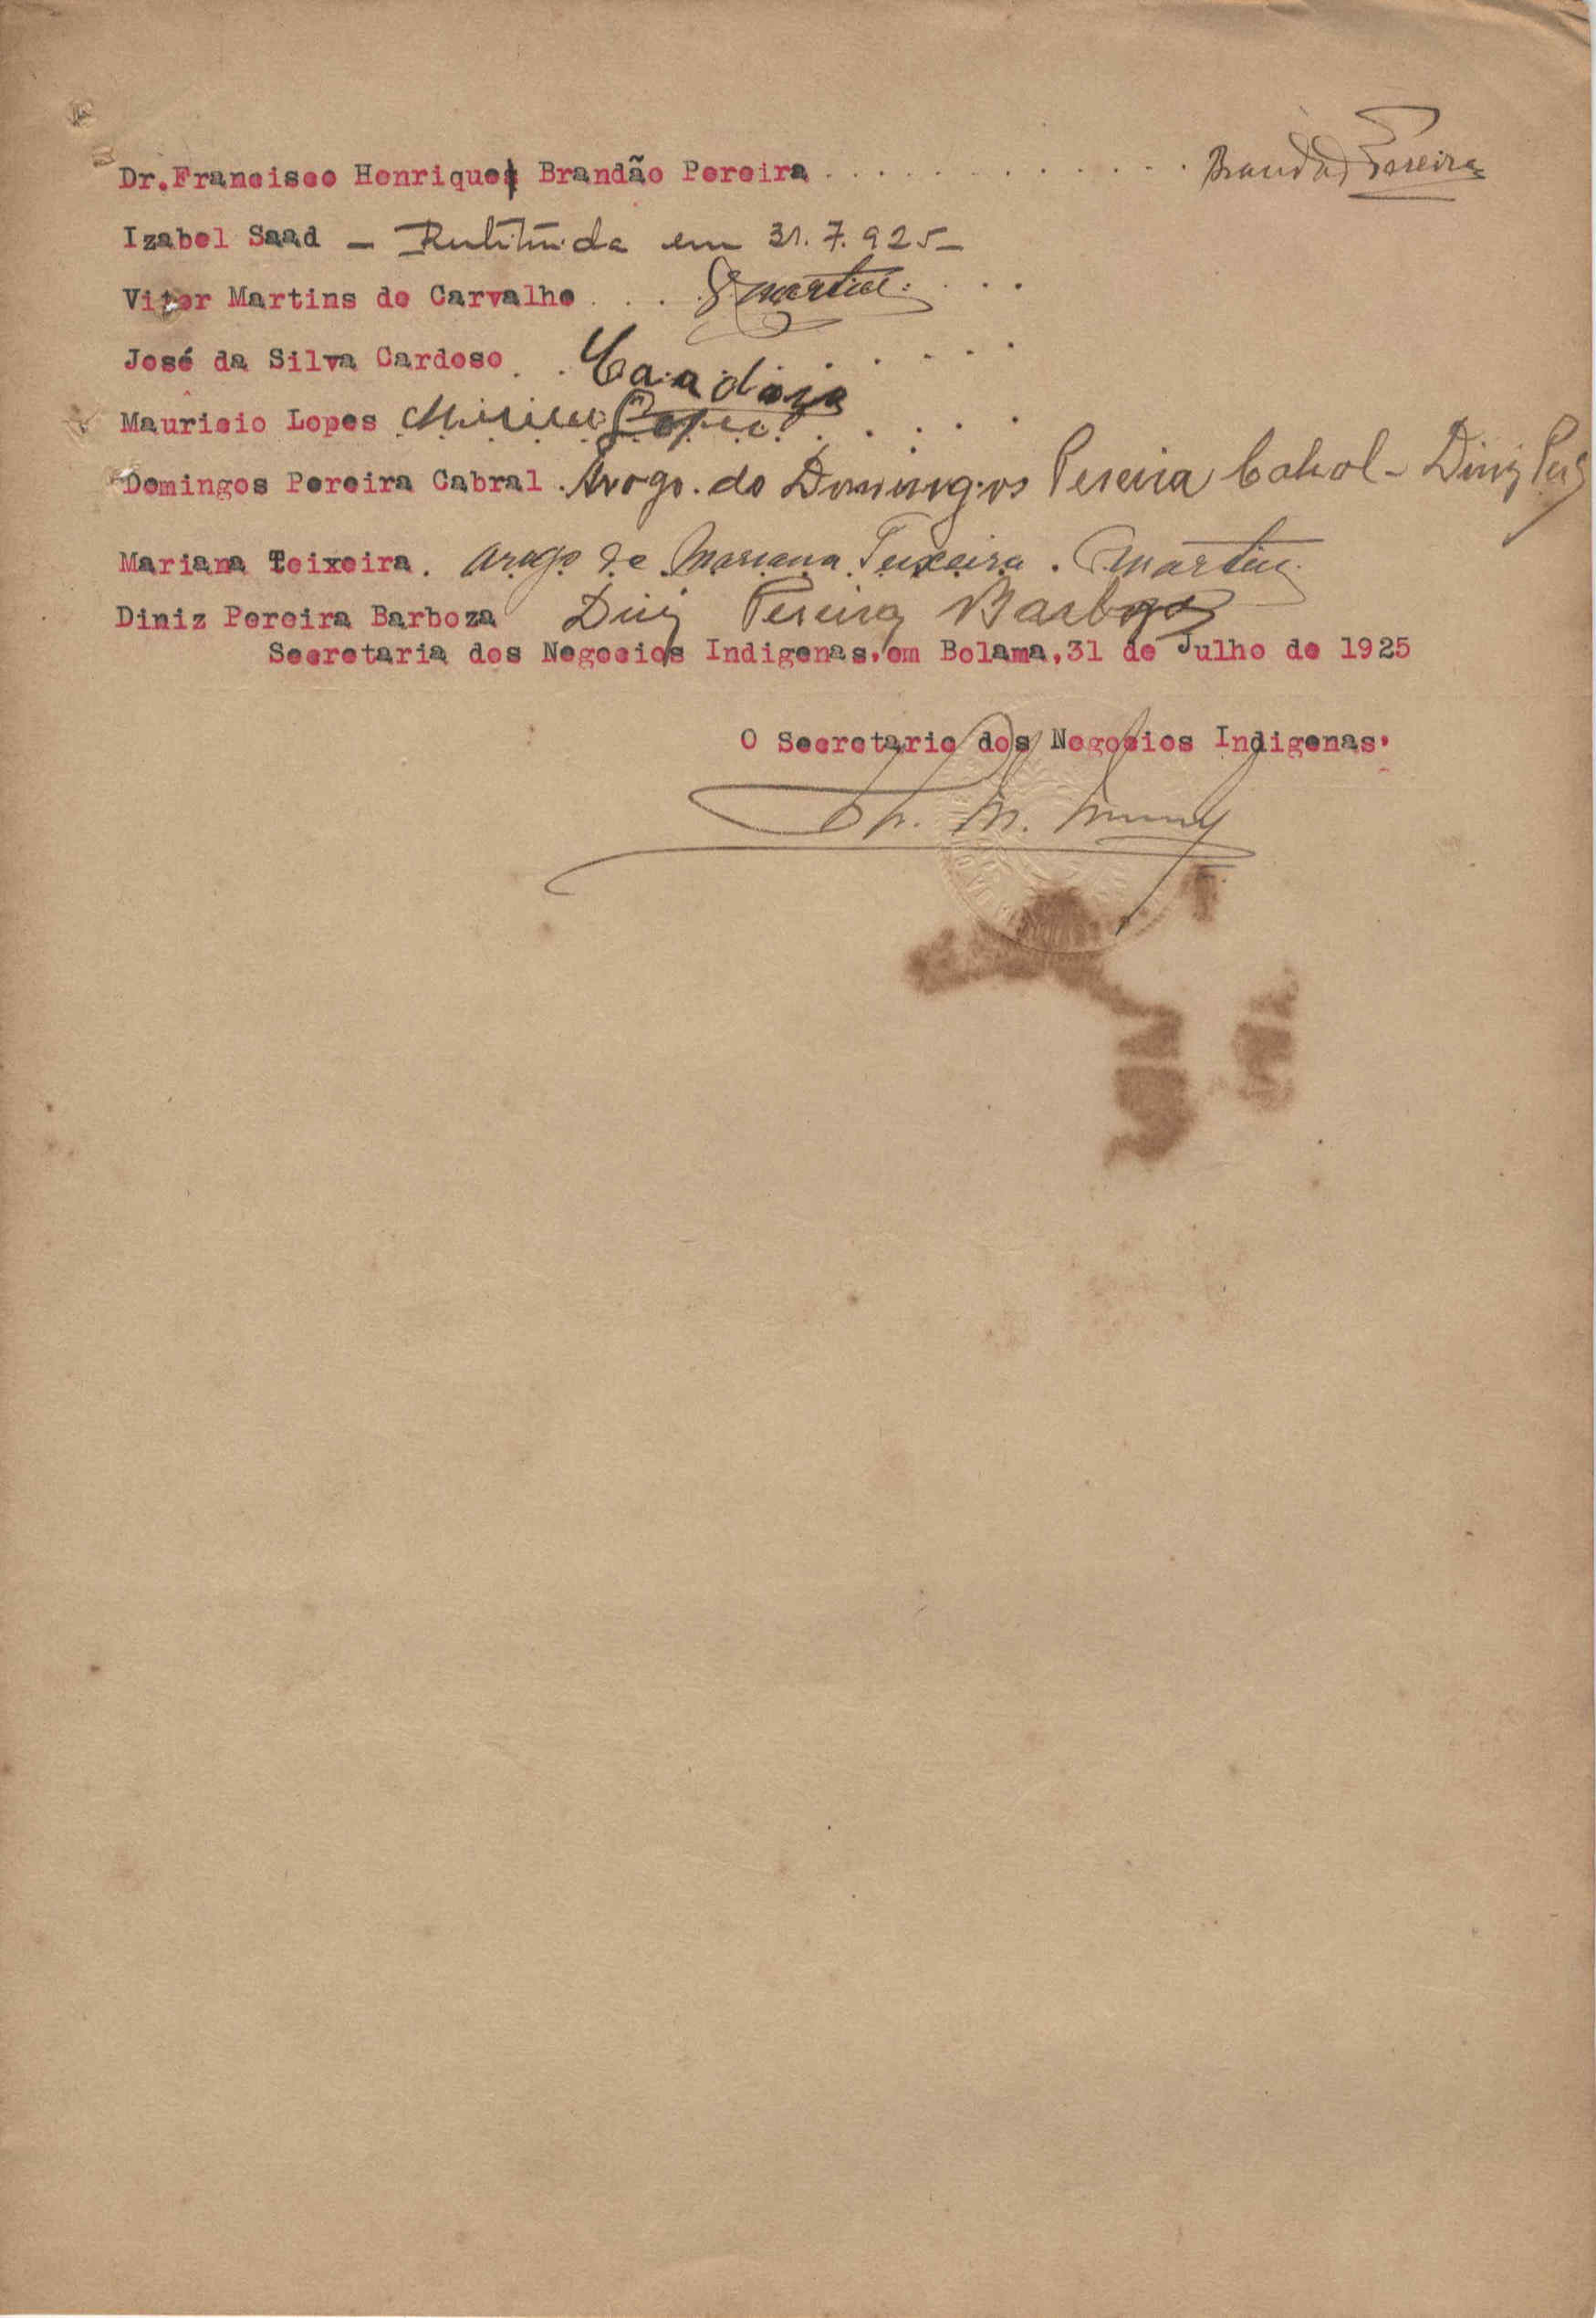 Dr. Francisco Henrique Brandão Pereira . . . . . . . . . . . . . Brandão Pereira
Izabel Saad — Restituida em 31.7.925 —
Vitor Martins de Carvalho . . . . Martins . . .
José da Silva Cardoso . . Cardoso . . . .
Mauricio Lopes Lopes . . . .
Domingos Pereira Cabral . Arogo. do Domingos Pereira Cabral - Diniz
Mariana Teixeira . Arogo de Mariana Teixeira . Martins
Diniz Pereira Barboza Diniz Pereira Barboza
Secretaria dos Negocios Indigenas, em Bolama, 31 de Julho de 1925
O Secretario dos Negocios Indigenas,